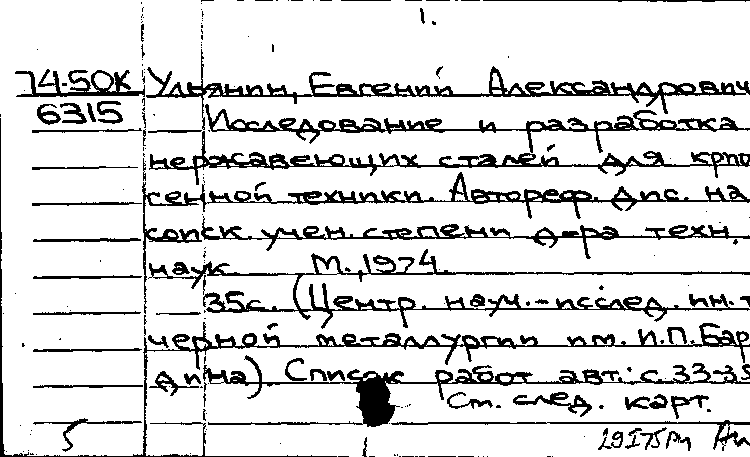 1.
74-50К Ульянин, Евгений Александрович
6315 Исследование и разработка
нержавеющих сталей для крио
генной техники. Автореф. дис. на
соиск. учен. степени д-ра техн.
наук. М., 1974.
35с. (Центр. науч.-исслед. ин. т
черной металлургии им. И.П. Бар
дина). Список работ авт.: с. 33-35
См. след. карт.
5